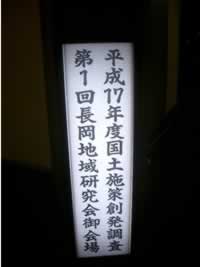 平成17年度国土施策創発調査
第1回長岡地域研究会御会場